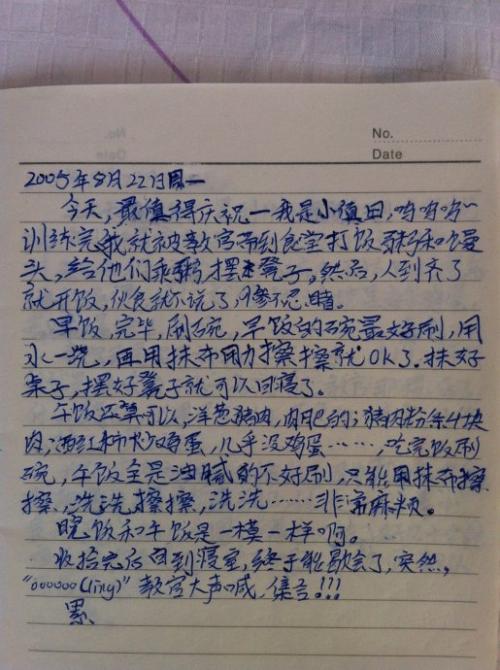 No.
Date
2005年8月22日周一
今天,最值得庆祝—我是小值日,哈哈哈~
训练完我就被教官带到食堂打饭粥和馒
头,给他们乘粥,摆凳子。然后,人到齐了
就开饭,伙食就不说了,惨不忍睹。
早饭,完毕,刷碗,早饭的碗最好刷,用
水一浇,再用抹布用力擦擦就OK了.抹好
桌子,摆好凳子就可以回寝了。
午饭还算可以,洋葱猪肉,肉肥的;猪肉粉条4块
肉;西红柿炒鸡蛋,几乎没鸡蛋……,吃完饭刷
碗,午饭全是油腻的不好刷,只能用抹布擦
擦、洗洗擦擦,洗洗……非常麻烦。
晚饭和午饭是一模一样啊。
收拾完后回到寝室,终于能歇会了,突然,
"oooooo(ling)"教官大声喊,集合!!!
累